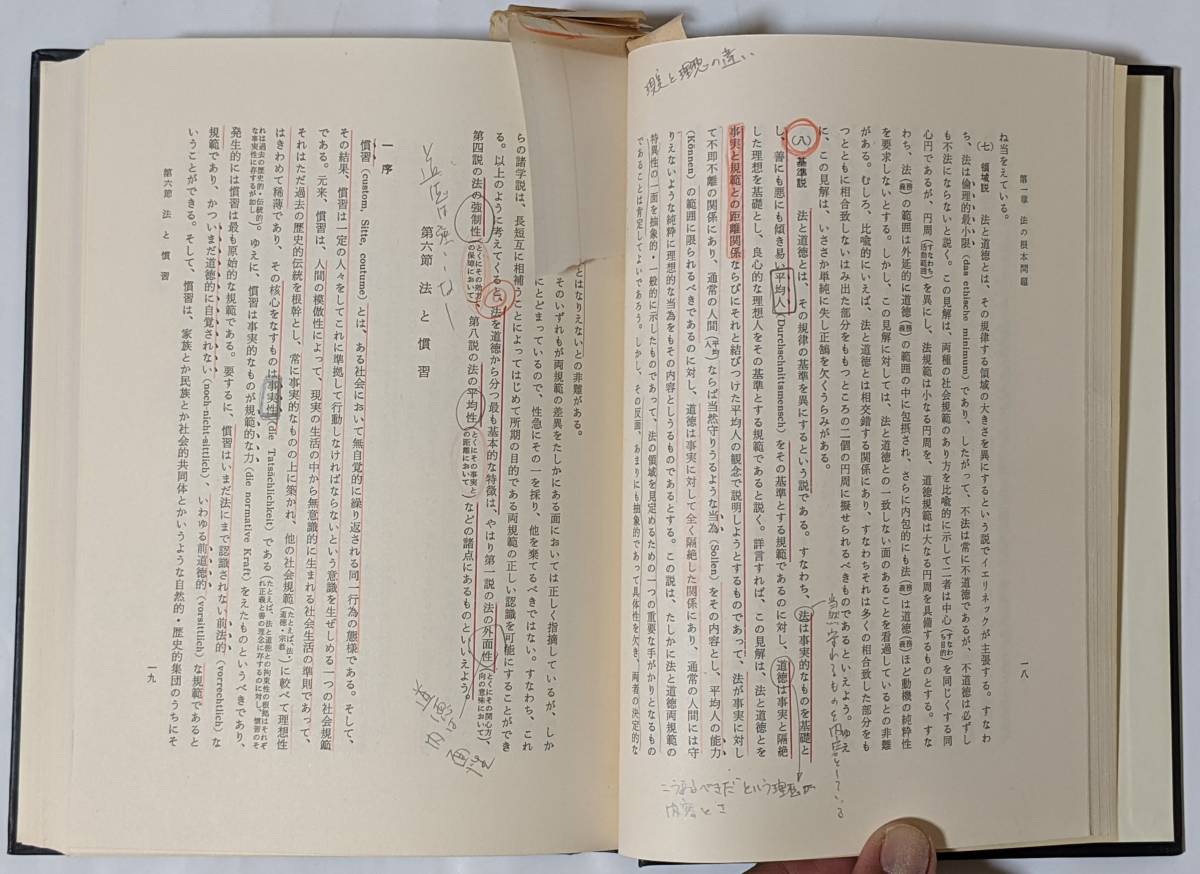 第一章 法の根本問題
一八
ね当をえている。
(七) 領域説 法と道徳とは、その規律する領域の大きさを異にするという説でイエリネックが主張する。すなわ
ち、法は倫理的最小限(das ethische minimum)であり、したがって、不法は常に不道徳であるが、不道徳は必ずし
も不法にならないと説く。この見解は、両種の社会規範のあり方を比喩的に示して二者は中心(すなわち目的)を同じくする同
心円であるが、円周(すなわち活動範囲)を異にし、法規範は小なる円周を、道徳規範は大なる円周を具備するものとする。すな
わち、法(義務)の範囲は外延的に道徳(義務)の範囲の中に包摂され、さらに内包的にも法(義務)は道徳(義務)ほど動機の純粋性
を要求しないとする。しかし、この見解に対しては、法と道徳との一致しない面のあることを看過しているとの非難
がある。むしろ、比喩的にいえば、法と道徳とは相交錯する関係にあり、すなわちそれは多くの相合致した部分をも
つとともに相合致しないはみ出た部分をももつところの二個の円周に擬せられるべきものであるといえよう。ゆえ
に、この見解は、いささか単純に失し正鵠を欠くうらみがある。
(八) 基準説 法と道徳とは、その規律の基準を異にするという説である。すなわち、法は事実的なものを基礎と
し、善にも悪にも傾き易い平均人(Durchschnittsmensch)をその基準とする規範であるのに対し、道徳は事実と隔絶
した理想を基礎とし、良心的な理想人をその基準とする規範であると説く。詳言すれば、この見解は、法と道徳とを
事実と規範との距離関係ならびにそれと結びつけた平均人の観念で説明しようとするものであって、法が事実に対し
て不即不離の関係にあり、通常の人間(平均人)ならば当然守りうるような当為(Sollen)をその内容とし、平均人の能力
(Können)の範囲に限られるべきであるのに対し、道徳は事実に対して全く隔絶した関係にあり、通常の人間には守
りえないような純粋に理想的な当為をもその内容としうるものであるとする。この説は、たしかに法と道徳両規範の
特異性の一面を抽象的・一般的に示したものであって、法の領域を見定めるための一つの重要な手がかりとなるもの
であることは肯定してよいであろう。しかし、その反面、あまりにも抽象的であって具体性を欠き、両者の決定的な
現実と理想の違い
当然守れるものを内容としている
こうあるべきだ"という理想が
内容とさ
とはなりえないとの非難がある。
そのいずれもが両規範の差異をたしかにある面においては正しく指摘しているが、しか
にとどまっているので、性急にその一を採り、他を棄てるべきではない。すなわち、これ
らの諸学説は、長短互に相補うことによってはじめて所期の目的である両規範の正しい認識を可能にすることができ
る。以上のように考えてくると、法を道徳から分つ最も基本的な特徴は、やはり第一説の法の外面性(とくにその関心方向の意味において)、
第四説の法の強制性(とくにその効力の保障において)、第八説の法の平均性(とくにその事実との距離において)などの諸点にあるものといえよう。
道徳の
内面性
第六節 法と慣習
一 序
慣習(custom, Sitte, coutume)とは、ある社会において無自覚的に繰り返される同一行為の態様である。そして、
その結果、慣習は一定の人々をしてこれに準拠して行動しなければならないという意識を生ぜしめる一つの社会規範
である。元来、慣習は、人間の模倣性によって、現実の生活の中から無意識的に生まれる社会生活の準則であって、
それはただ過去の歴史的伝統を根幹とし、常に事実的なものの上に築かれ、他の社会規範(たとえば法・道徳・宗教)に較べて理想性
はきわめて稀薄であり、その核心をなすものは事実性(die Tatsächlichkeit)である(たとえば、法と道徳との拘束性の根拠はそれぞれ正義と善の理念に存するのに対し、慣習のそれは過去の歴史的・伝統的な事実性に存するが如し)。ゆえに、慣習は事実的なものが規範的な力(die normative Kraft)をえたものというべきであり、
発生的には慣習は最も原始的な規範である。要するに、慣習はいまだ法にまで認識されない前法的(vorrechtlich)な
規範であり、かついまだ道徳的に自覚されない(noch-nicht-sittlich)、いわゆる前道徳的(vorsittlich)な規範であると
いうことができる。そして、慣習は、家族とか民族とか社会的共同体とかいうような自然的・歴史的集団のうちにそ
第六節 法と慣習
一九